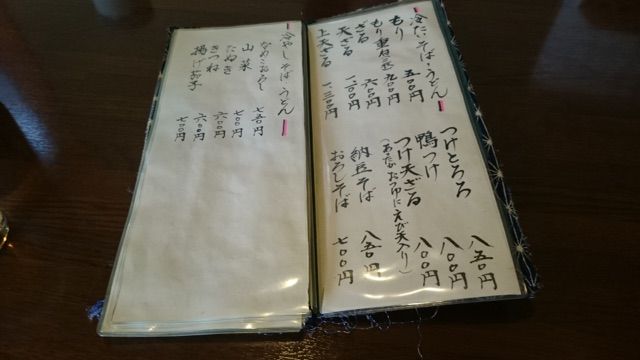 冷たいそば・うどん
もり 五〇〇円
もり重ね(二枚) 九〇〇円
ざる 六〇〇円
天ざる 一、一〇〇円
上天ざる 一、三〇〇円
つけとろろ 八五〇円
鴨つけ 八〇〇円
つけ天ざる 八〇〇円
(あたたかつゆにえび天入り)
納豆そば 八五〇円
おろしそば 七〇〇円
冷やしそば・うどん
なめこおろし 七五〇円
山菜 七〇〇円
たぬき 六〇〇円
きつね 六〇〇円
揚げお手 七〇〇円